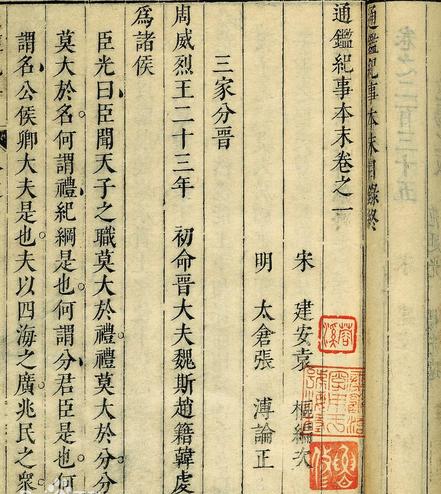 通鑑紀事本末目錄終
通鑑紀事本末卷之一
宋 建安袁 樞編次
明 太倉張 溥論正
三家分晉
周威烈王二十三年 初命晉大夫魏斯趙籍韓虔
爲諸侯
臣光曰臣聞天子之職莫大於禮禮莫大於分分
莫大於名何謂禮紀綱是也何謂分君臣是也何
謂名公侯卿大夫是也夫以四海之廣兆民之衆